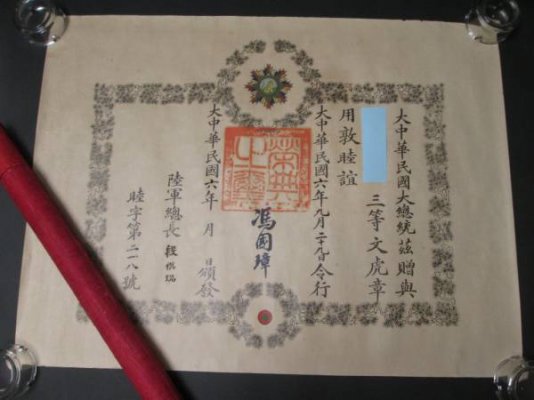 大中華民國大總統茲贈與
三等文虎章
用敦睦誼
大中華民國六年九月二十日令行
榮典之璽
馮國璋
大中華民國六年 月 日頒發
陸軍總長 段祺瑞
睦字第二一八號